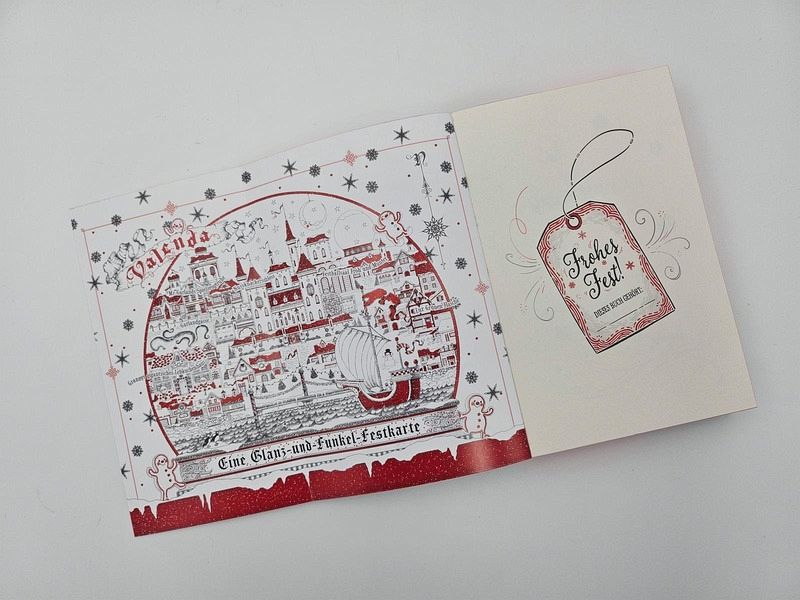 Valenda
Eine Glanz-und-Funkel-Festkarte
Frohes
Fest!
DIESES BUCH GEHÖRT: